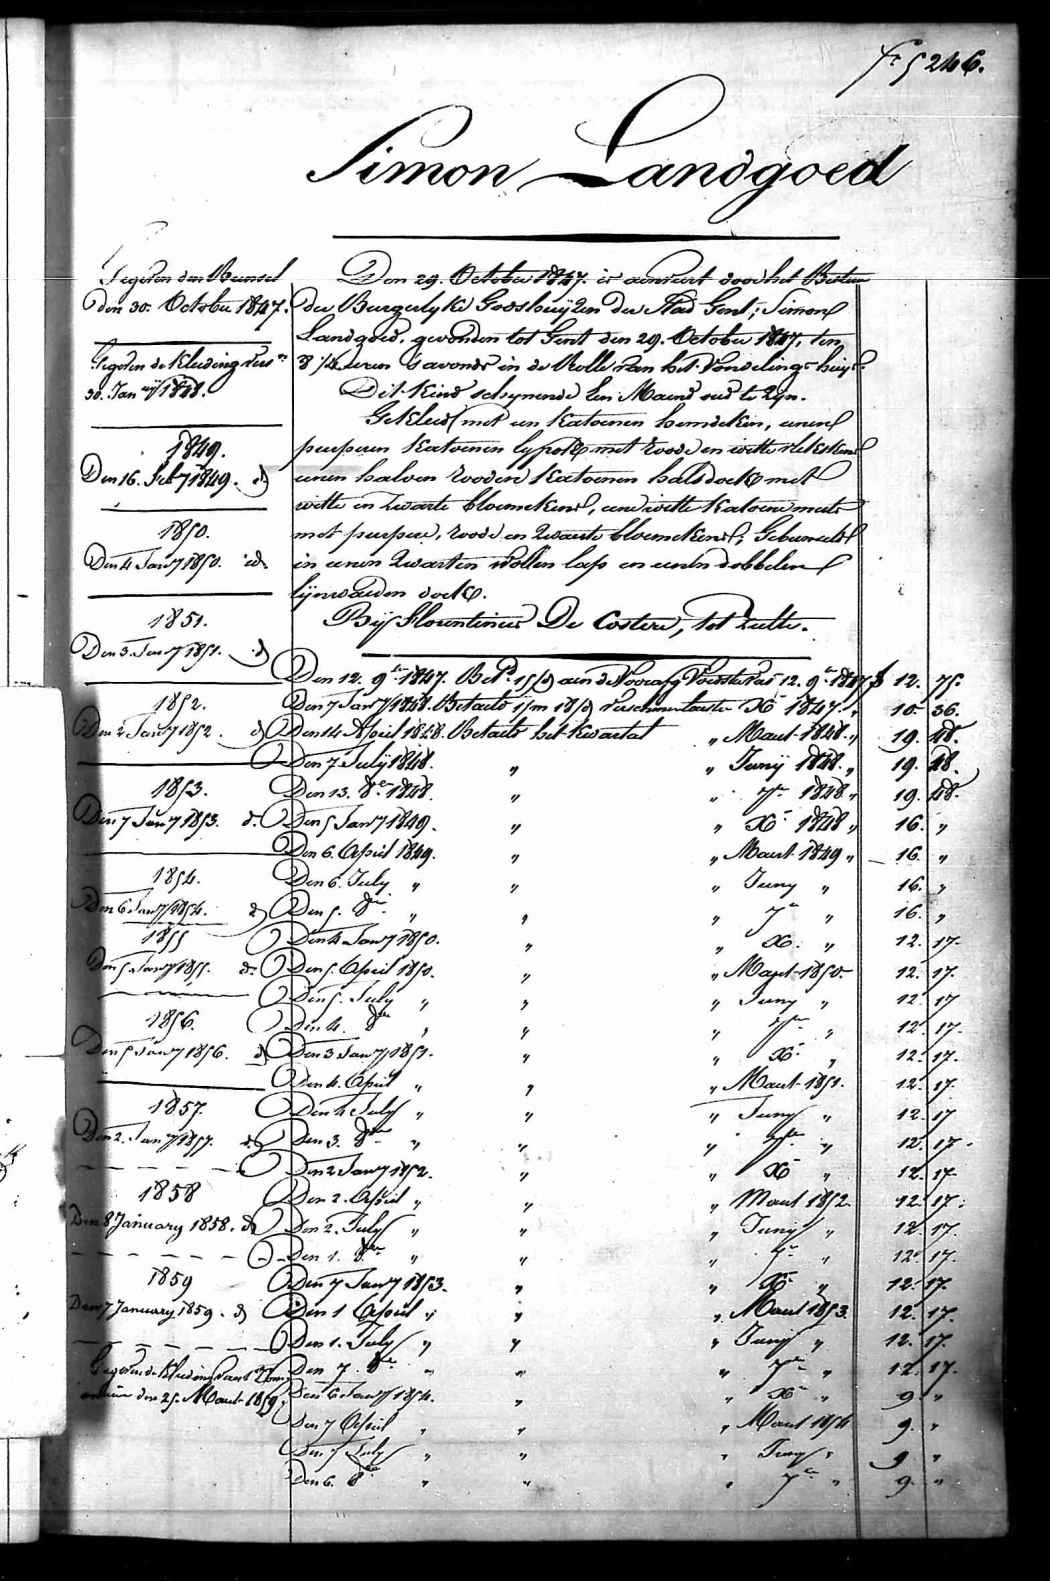 fº 5246.
Simon Landgoed
Gegeven den Bunsel
Den 30. October 1847.
Gegeven de Kleeding van
30. Jany 1848.
1849.
Den 16. Feby 1849. id
1850.
Den 4 Jany 1850. id.
1851.
Den 3. Jany 1851. id
1852.
Den 2 Jany 1852. id
1853.
Den 7 Jany 1853. id.
1854.
Den 6 Jany 1854. id
1855
Den 5 Jany 1855. id.
1856.
Den 5 Jany 1856. id
1857.
Den 2. Jany 1857. id.
1858
Den 8 January 1858. id
1859
Den 7 January 1859. id
Gegeven de Kleeding voor de Com
munie den 25. Maart 1859.
Den 29. October 1847. is aenveirt door het Bestier
der Burgerlyke Godshuijzen der Stad Gent; Simon
Landgoed, gevonden tot Gent den 29. October 1847, ten
8 1/4 uren s'avonds in de Rolle van het Vondeling-huijs.
Dit Kind schynende Een Maend oud te Zyn.
Gekleed met een Katoenen hemdeken, eenen
purperen Katoenen lypok met roode en witte
eenen halven rooden Katoenen halsdoek met
witte en zwarte bloemekens, eene witte Katoene muts
met purpere, roode en zwarte bloemekens; Gebuseld
in eenen Zwarten Wollen lap en eenen dobbelen
lijnwaeden doek.
Bij Florentinus De Costere, tot Zulte.
Den 12. 9bre 1847. Bet. aen de Vooraf 12. 9bre 1847 f 12. 75.
Den 7 Jany 1848. Betaeld Xbre 1847. " 10. 36.
Den 14 April 1848. Betaeld het Kwartael " Maart 1848. " 19. 48.
Den 7. Julij 1848. " " Junij 1848. " 19. 48.
Den 13. 8bre 1848. " " 7bre 1848. " 19. 48.
Den 5 Jany 1849. " " Xbre 1848 " 16. "
Den 6. April 1849. " " Maart 1849 " 16. "
Den 6. July " " " Juny " 16. "
Den 5. 8bre " " " 7bre " 16. "
Den 4 Jany 1850. " " Xbre " 12. 17.
Den 5. April 1850. " " Maart 1850. 12. 17.
Den 5. July " " " Juny " 12. 17
Den 4. 8bre " " " 7bre " 12. 17.
Den 3 Jany 1851. " " Xbre " 12. 17.
Den 4. April " " " Maart 1851. 12. 17.
Den 4 July " " " Juny " 12. 17
Den 3. 8bre " " " 7bre " 12. 17.
Den 2 Jany 1852. " " Xbre " 12. 17
Den 2. April " " " Maart 1852. 12. 17.
Den 2. July " " " Juny " 12. 17.
Den 1. 8bre " " " 7bre " 12. 17.
Den 7 Jany 1853. " " Xbre " 12. 17.
Den 1 April " " " Maart 1853. 12. 17.
Den 1. July " " " Juny " 12. 17.
Den 7. 8bre " " " 7bre " 12. 17.
Den 6 Jany 1854. " " Xbre " 9. "
Den 7 April " " " Maart 1854 9. "
Den 7 July " " " Juny " 9 "
Den 6. 8bre " " " 7bre " 9. "